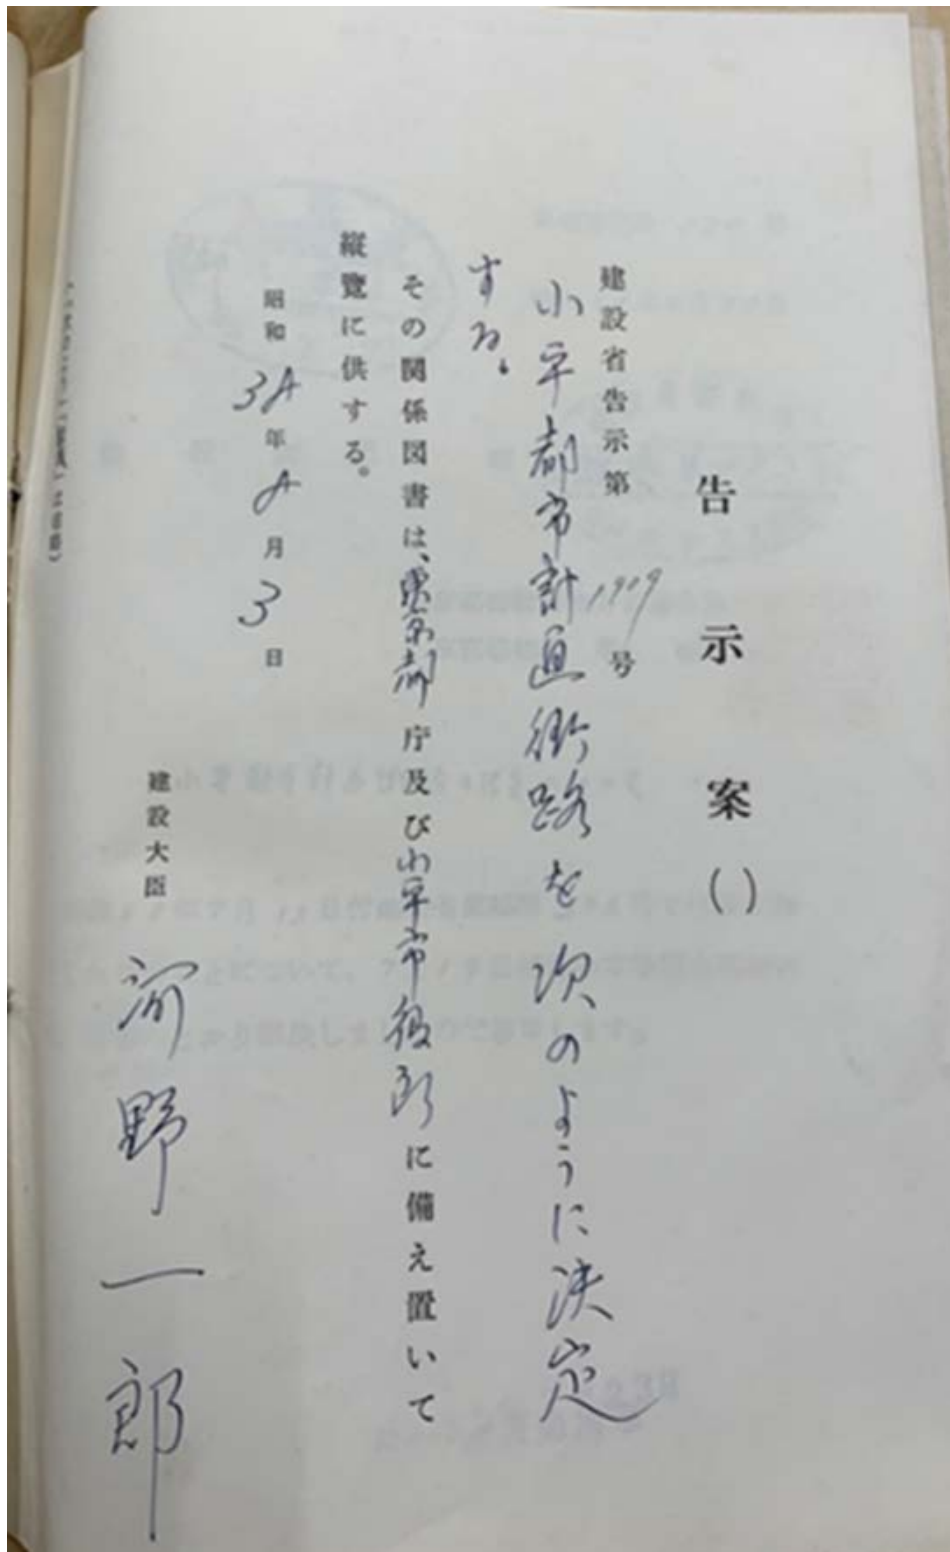 告示案()
建設省告示第 号
小平都市計画街路を次のように決定
する。
その関係図書は、東京都庁及び小平市役所に備え置いて
縦覧に供する。
昭和38年8月3日
建設大臣 河野一郎